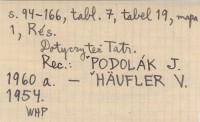 s. 94-166, tabl. 7, tabel 19, mapa
1, Rés.
Dotyczy też Tatr.
Rec.: ˇPODOLÁK J.
1960 a. — ˇHÄUFLER V.
1954.
WHP